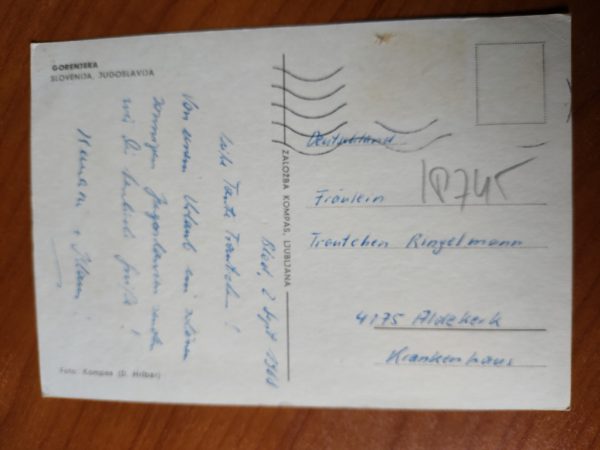 GORENJSKA
SLOVENIJA, JUGOSLAVIJA
Bled, 2 Sept
Liebe Tante Trautchen!
Von einem Urlaub im schönen
sonnigen Jugoslawien senden
wir Dir herzliche Grüße!
ZALOŽBA KOMPAS, LJUBLJANA
Foto: Kompas (D. Hribar)
Deutschland
Fräulein
Trautchen Ringelmann
4175 Aldekerk
Krankenhaus